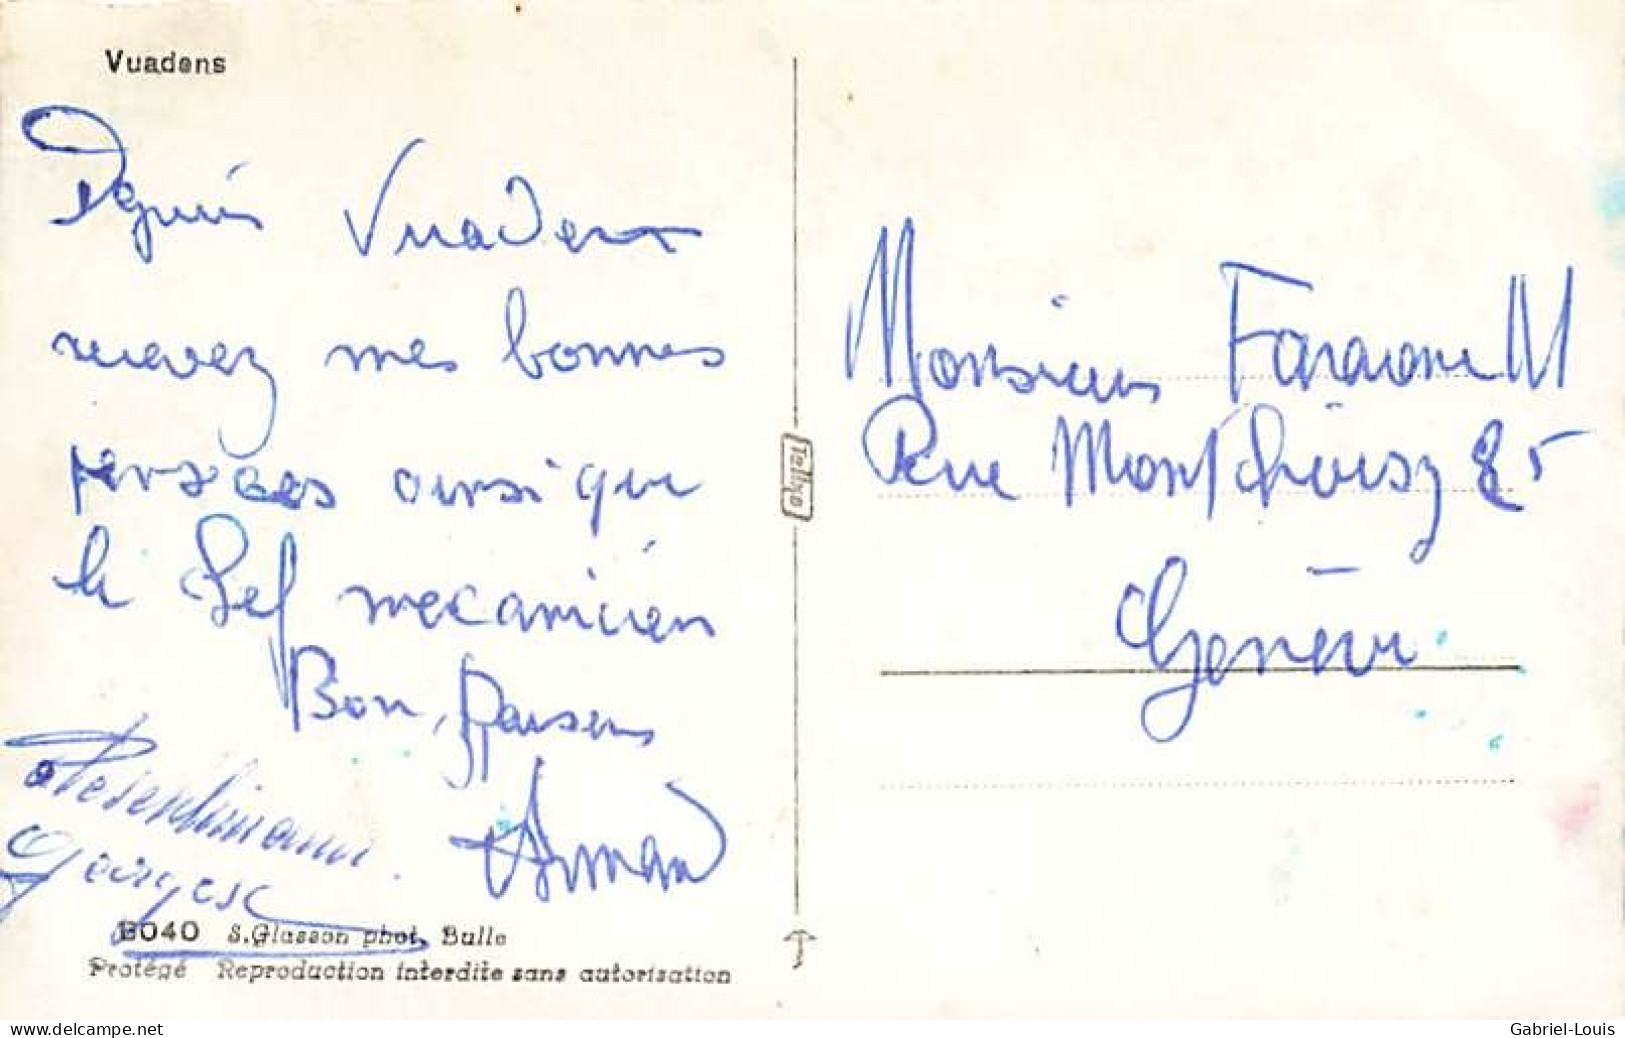 Vuadens
Depuis Vuadens
recevez mes bonnes
pensées ainsi que
le Sef mecanicien
Bon,
Arman
Georges
Monsieur Faraone M
Rue Montchoisy 25
Genève
Tellko
8040 S.Glasson phot. Bulle
Protégé Reproduction interdite sans autorisation
www.delcampe.net
Gabriel-Louis